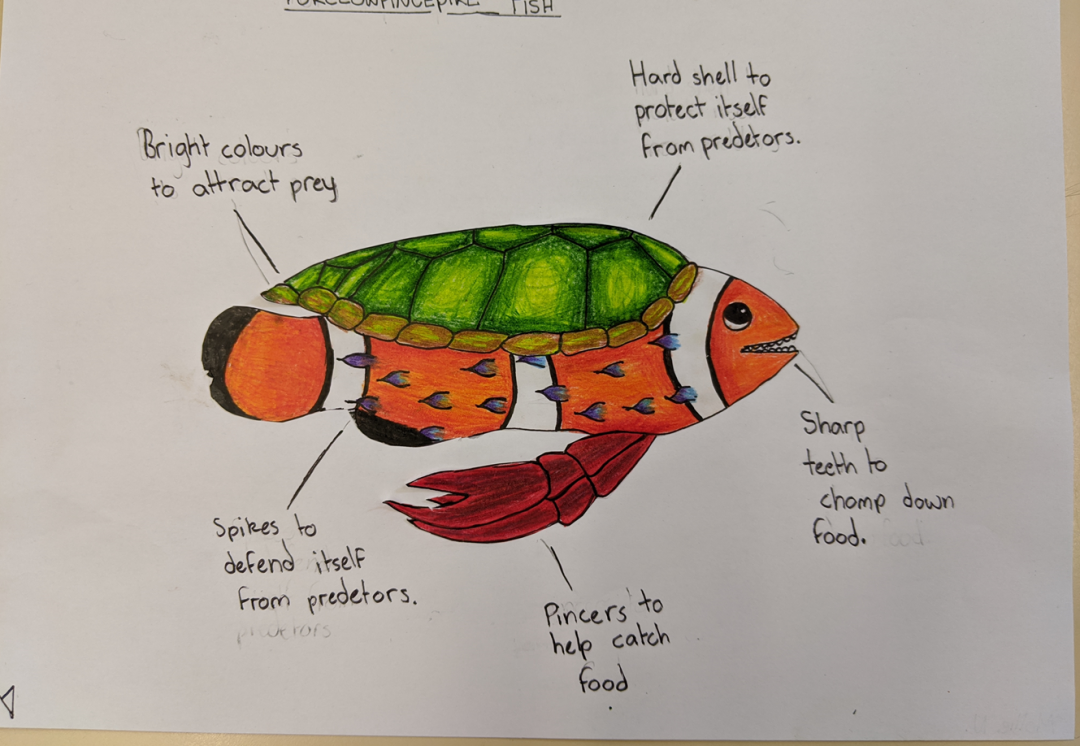 FISH
Hard shell to
protect itself
from predetors.
Bright colours
to attract prey
Sharp
teeth to
chomp down
food.
Spikes to
defend itself
from predetors.
predetors
Pincers to
help catch
food